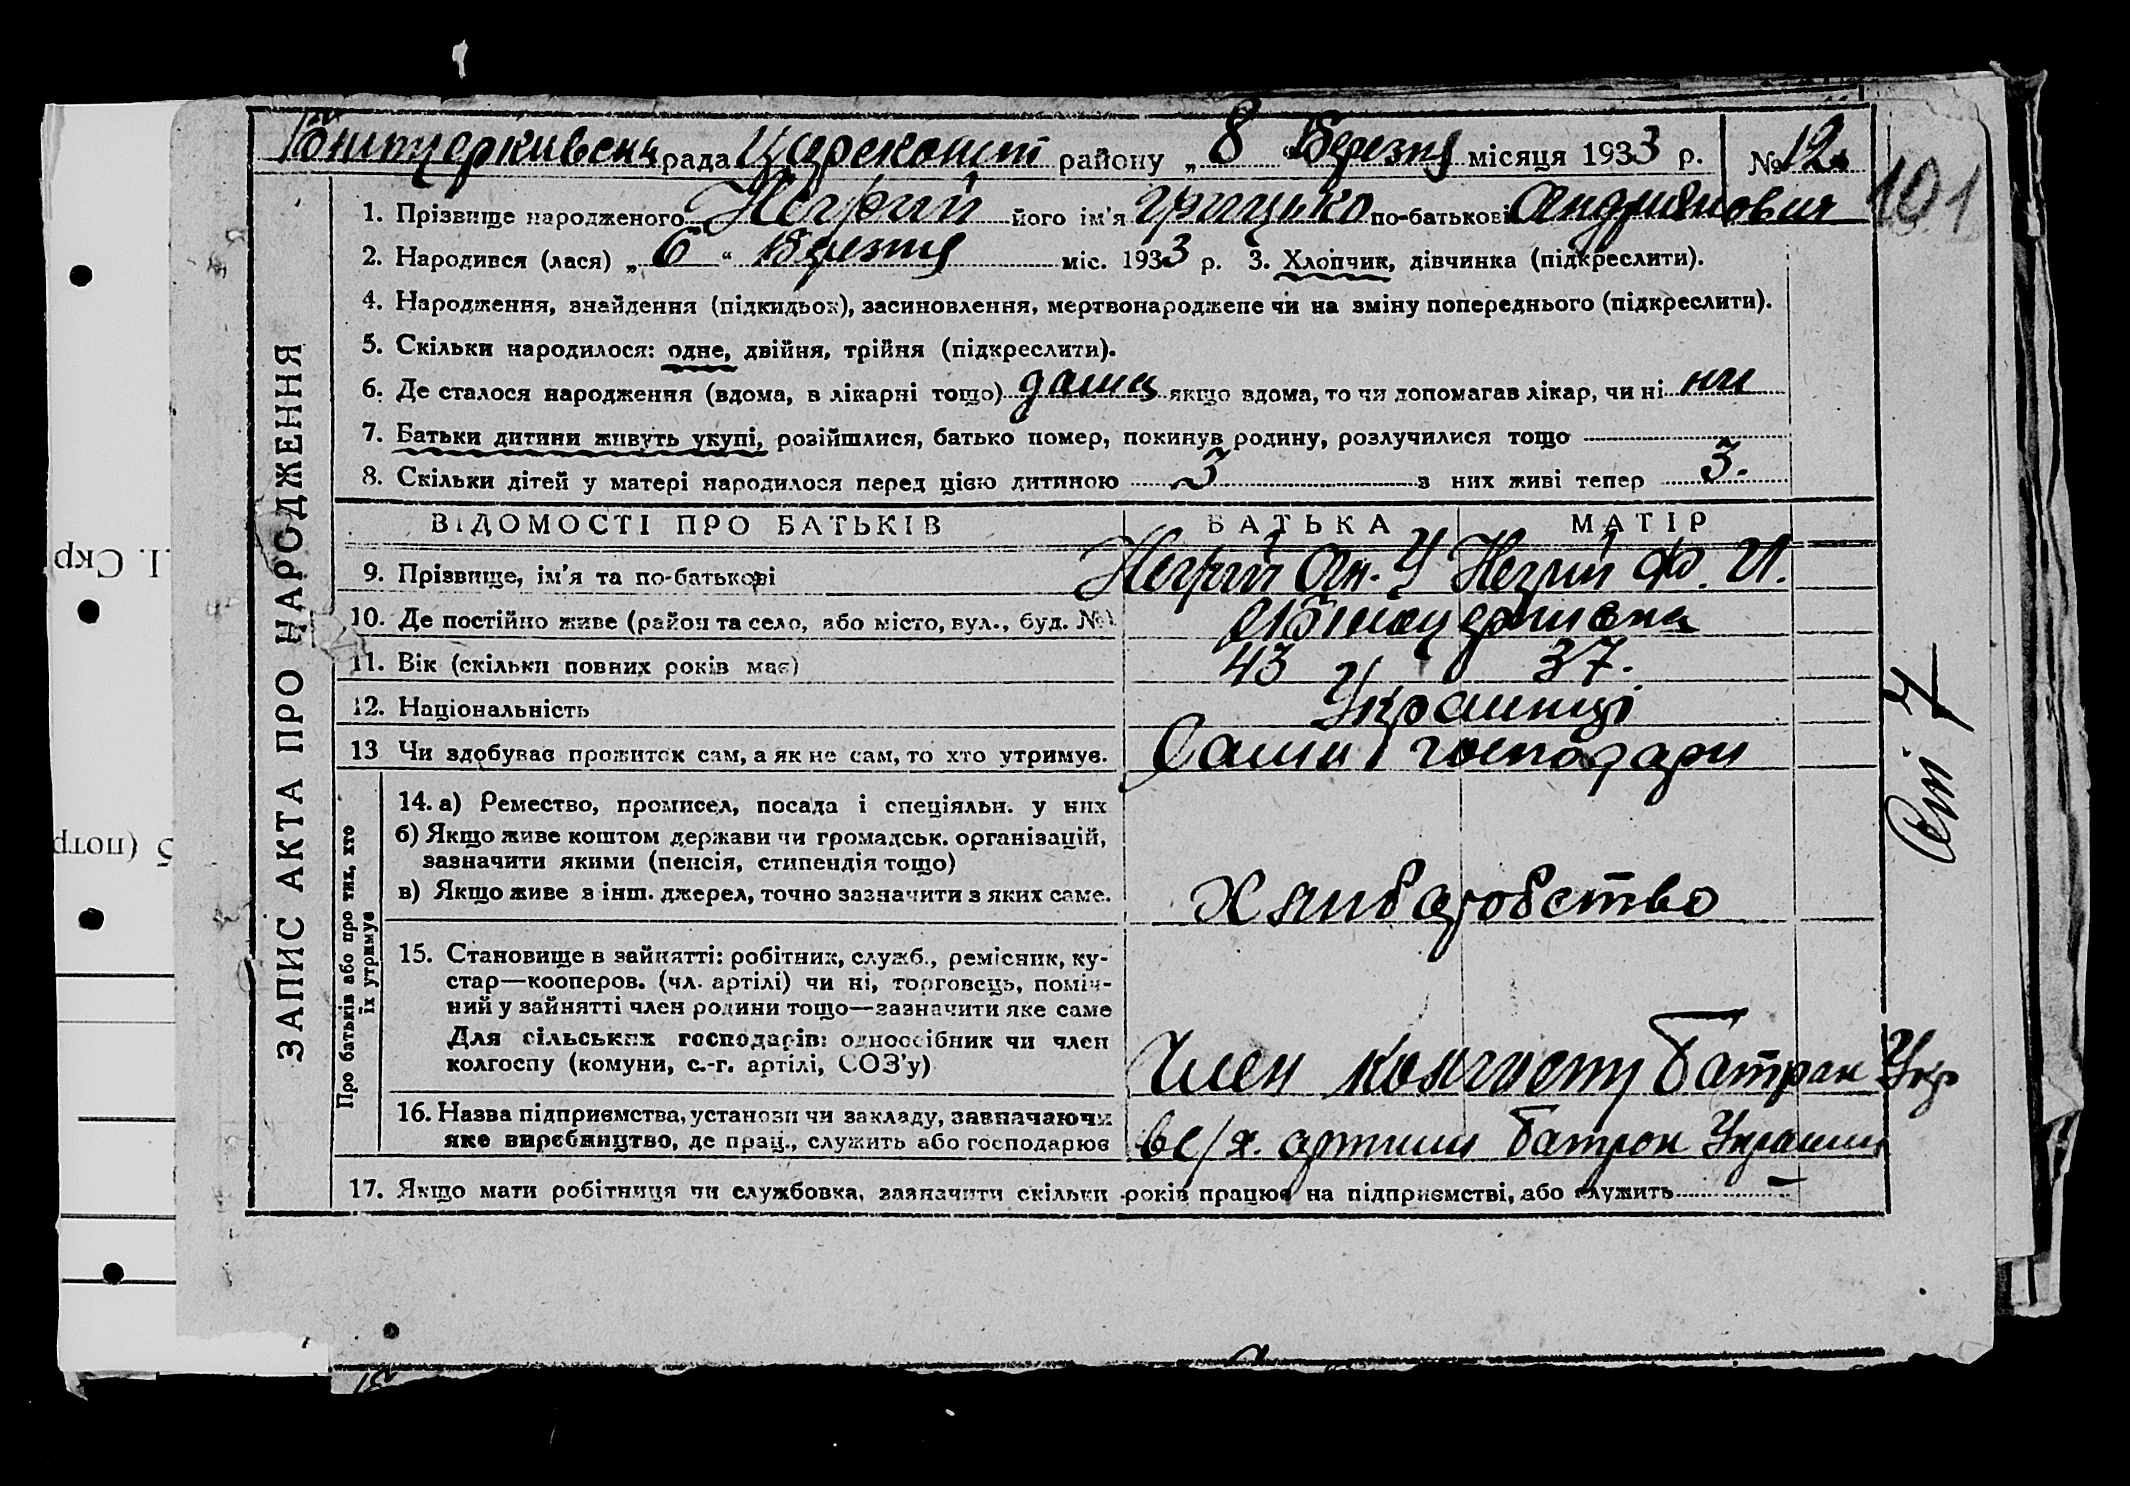 рада района „ 8 “ Березня місяця 1933 р. № 12
101
ЗАПИС АКТА ПРО НАРОДЖЕННЯ
1. Прізвище народженого Негрий його ім'я Грицько по-батькові Андриянович
2. Народився (лася) „ 6 “ Березня міс. 1933 р. 3. Хлопчик, дівчинка (підкреслити).
4. Народження, знайдення (підкидьок), засиновлення, мертвонароджене чи на зміну попереднього (підкреслити).
5. Скільки народилося: одне, двійня, трійня (підкреслити).
6. Де сталося народження (вдома, в лікарні тощо) дома якщо вдома, то чи допомагав лікар, чи ні ни
7. Батьки дитини живуть укупі, розійшлися, батько помер, покинув родину, розлучилися тощо
8. Скільки дітей у матері народилося перед цією дитиною 3 з них живі тепер 3.
ВІДОМОСТІ ПРО БАТЬКІВ БАТЬКА МАТІР
9. Прізвище, ім'я та по-батькові Негрий Ан. У Негрий Ф. И.
10. Де постійно живе (район та село, або місто, вул., буд. №)
11. Вік (скільки повних років має) 43 37.
12. Національність Украинці
13 Чи здобуває прожиток сам, а як не сам, то хто утримує. Сами господари
Про батьків або про тих, хто
їх утримує
14. а) Ремество, промисел, посада і спеціяльн. у них
б) Якщо живе коштом держави чи громадськ. організацій,
зазначити якими (пенсія, стипендія тощо)
в) Якщо живе з інш. джерел, точно зазначити з яких саме. Хлиборобство
15. Становище в зайнятті: робітник, служб., ремісник, ку-
стар—кооперов. (чл. артілі) чи ні, торговець, поміч-
ний у зайнятті член родини тощо—зазначити яке саме
Для сільських господарів: одноосібник чи член
колгоспу (комуни, с.-г. артілі, СОЗ'у) Член колгоспу Батрак Укр
16. Назва підприємства, установи чи закладу, зазначаючи
яке виробництво, де прац., служить або господарює артили Батрак Украини
17. Якщо мати робітниця чи службовка, зазначити скільки років працює на підприємстві, або служить —